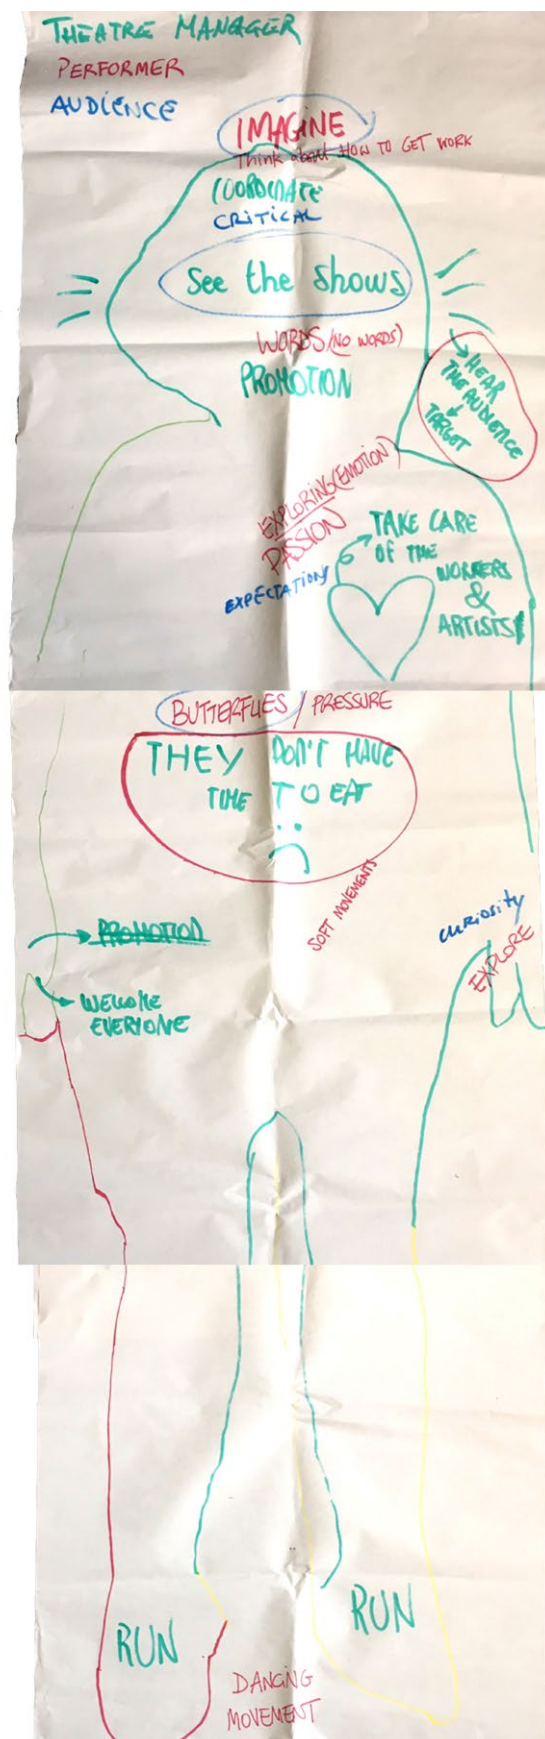 THEATRE MANAGER
PERFORMER
AUDIENCE
IMAGINE
Think about HOW TO GET WORK
COORDINATE
CRITICAL
See the shows
WORDS/(NO WORDS)
PROMOTION
HEAR
THE AUDIENCE
TARGET
EXPLORING (EMOTION)
PASSION
EXPECTATIONS
TAKE CARE
OF THE
WORKERS
&
ARTISTS
BUTTERFLIES / PRESSURE
THEY DON'T HAVE
TIME TO EAT
SOFT MOVEMENTS
PROMOTION
CURIOSITY
EXPLORE
WELCOME
EVERYONE
RUN
RUN
DANCING
MOVEMENT